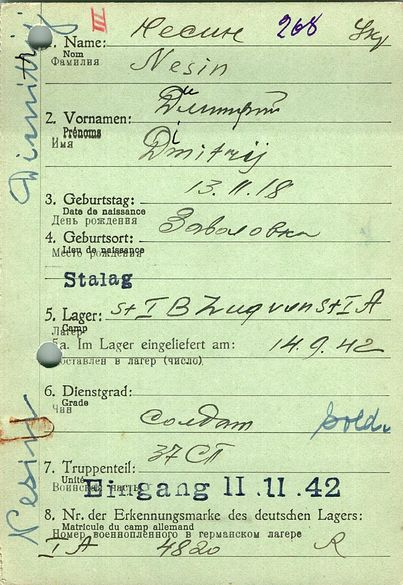 III
Несин 268
1. Name:
Nom
Фамилия
Nesin
Димитрий
2. Vornamen:
Prénoms
Имя
Dimitrij
3. Geburtstag: 13.11.18
Date de naissance
День рождения
4. Geburtsort: Заваловка
Lieu de naissance
Место рождения
Stalag
5. Lager: St I B Zug von St I A
Camp
Лагерь
5a. Im Lager eingeliefert am: 14.9.42
Доставлен в лагер (число)
6. Dienstgrad:
Grade
Чин
солдат Sold.
37 СП
7. Truppenteil:
Unité
Воинская часть
Eingang 11.11.42
8. Nr. der Erkennungsmarke des deutschen Lagers:
Matricule du camp allemand
Номер военнопленного в германском лагере
I A 4820 R
Nesin Dimitrij